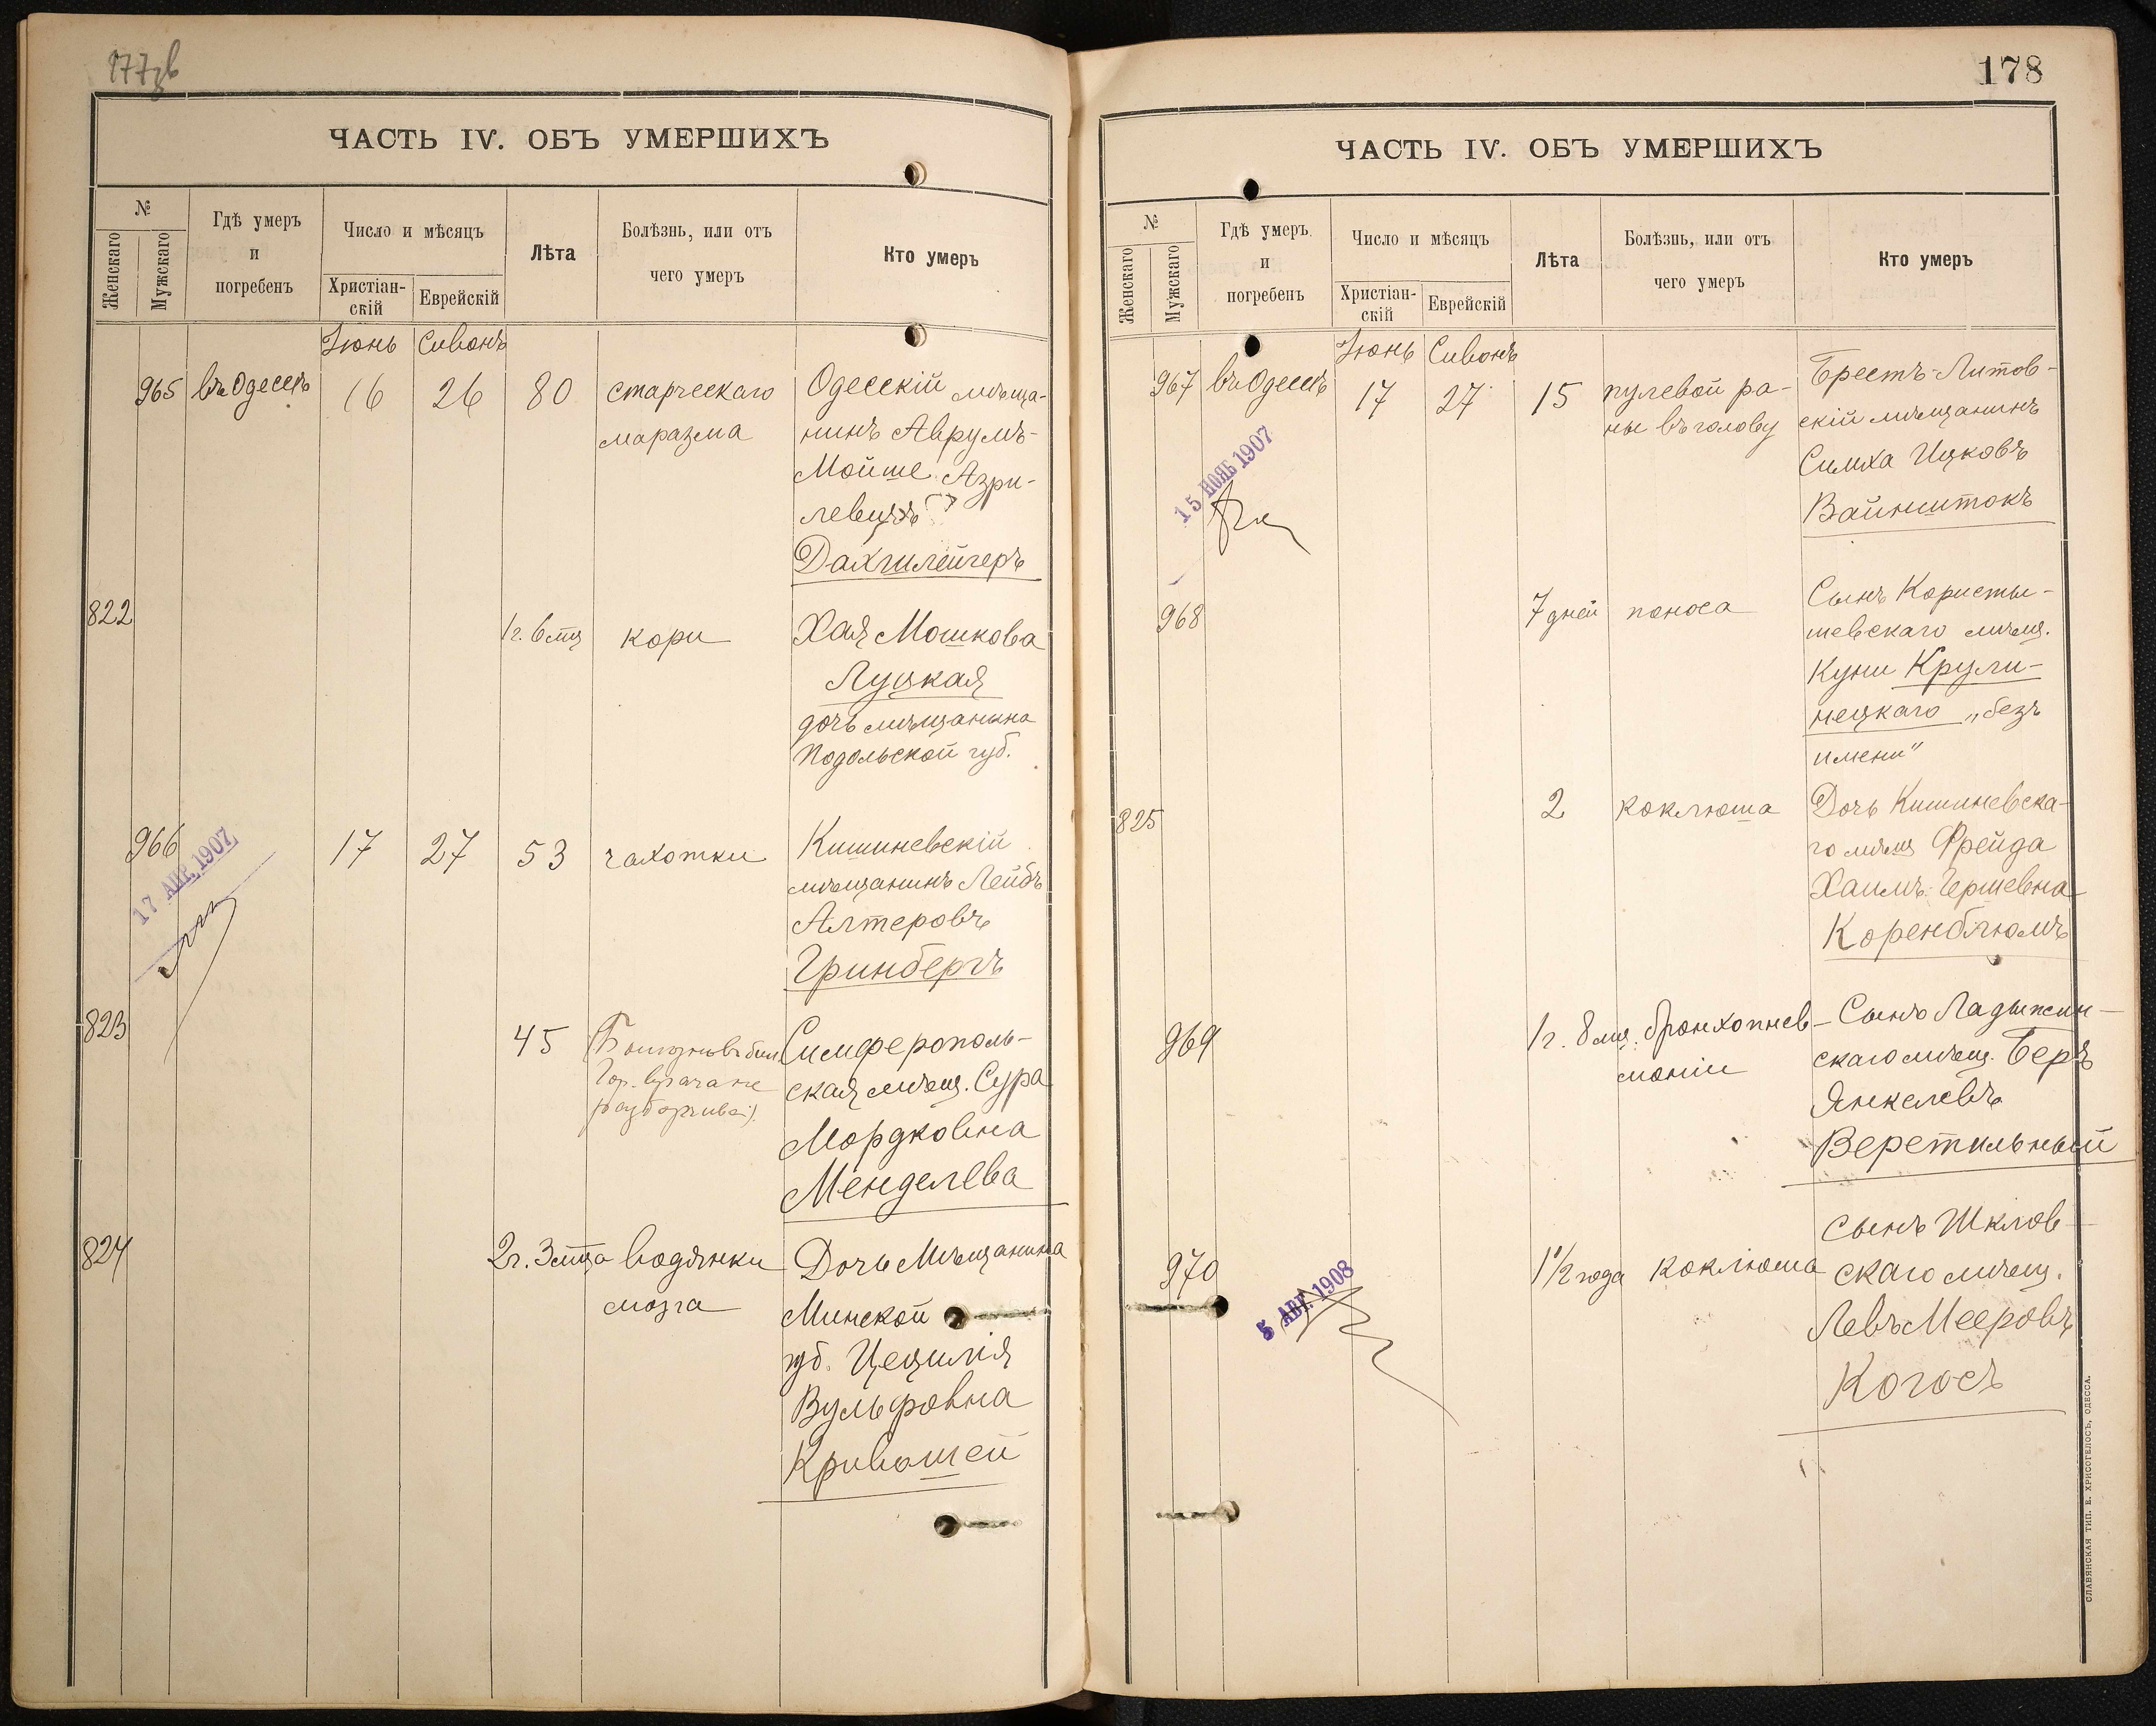 ЧАСТЬ IV. ОБЪ УМЕРШИХЪ
№
Женскаго
Мужскаго
Гдѣ умеръ
и
погребенъ
Число и мѣсяцъ
Христіан-
скій
Еврейскій
Лѣта
Болѣзнь, или отъ
чего умеръ
Кто умеръ
Іюнь Сивонъ
965 въ Одессѣ 16 26 80 старческаго Одесскій мѣща-
маразма нинъ Аврумъ-
Мойше Азри-
левичъ
Дахшлейгеръ
822 1 г. 6 мц кори Хая Мошкова
Луцкая
дочь мѣщанина
Подольской губ.
966 17 27 53 чахотки Кишиневскій
мѣщанинъ Лейбъ
Алтеровъ
Гринбергъ
17 АПР. 1907
823 45 (Болѣзнь въ бил. Симферополь-
Гор. врача не ская мѣщ. Сура
разборчива) Мордковна
Менделева
824 2 г. 3 мца водянки Дочь Мѣщанина
мозга Минской
губ. Цецилія
Вульфовна
Кривошей
178
ЧАСТЬ IV. ОБЪ УМЕРШИХЪ
№
Женскаго
Мужскаго
Гдѣ умеръ
и
погребенъ
Число и мѣсяцъ
Христіан-
скій
Еврейскій
Лѣта
Болѣзнь, или отъ
чего умеръ
Кто умеръ
Іюнь Сивонъ
967 въ Одессѣ 17 27 15 пулевой ра- Брестъ-Литов-
ны въ голову скій мѣщанинъ
Симха Ицковъ
Вайнштокъ
15 НОЯБ 1907
968 7 дней поноса Сынъ Користы-
шевскаго мѣщ.
Куни Крули-
нецкаго „безъ
имени"
825 2 коклюша Дочь Кишиневска-
го мѣщ Фрейда
Хаимъ-Гершевна
Коренблюмъ
969 1 г. 8 мц. бронхопнев- Сынъ Ладыжин-
моніи скаго мѣщ. Беръ
Янкелевъ
Веретильный
970 1 1/2 года коклюша Сынъ Шклов-
скаго мѣщ.
Левъ Мееровъ
Когосъ
5 АВГ. 1908
СЛАВЯНСКАЯ ТИП. Е. ХРИСОГЕЛОСЪ, ОДЕССА.